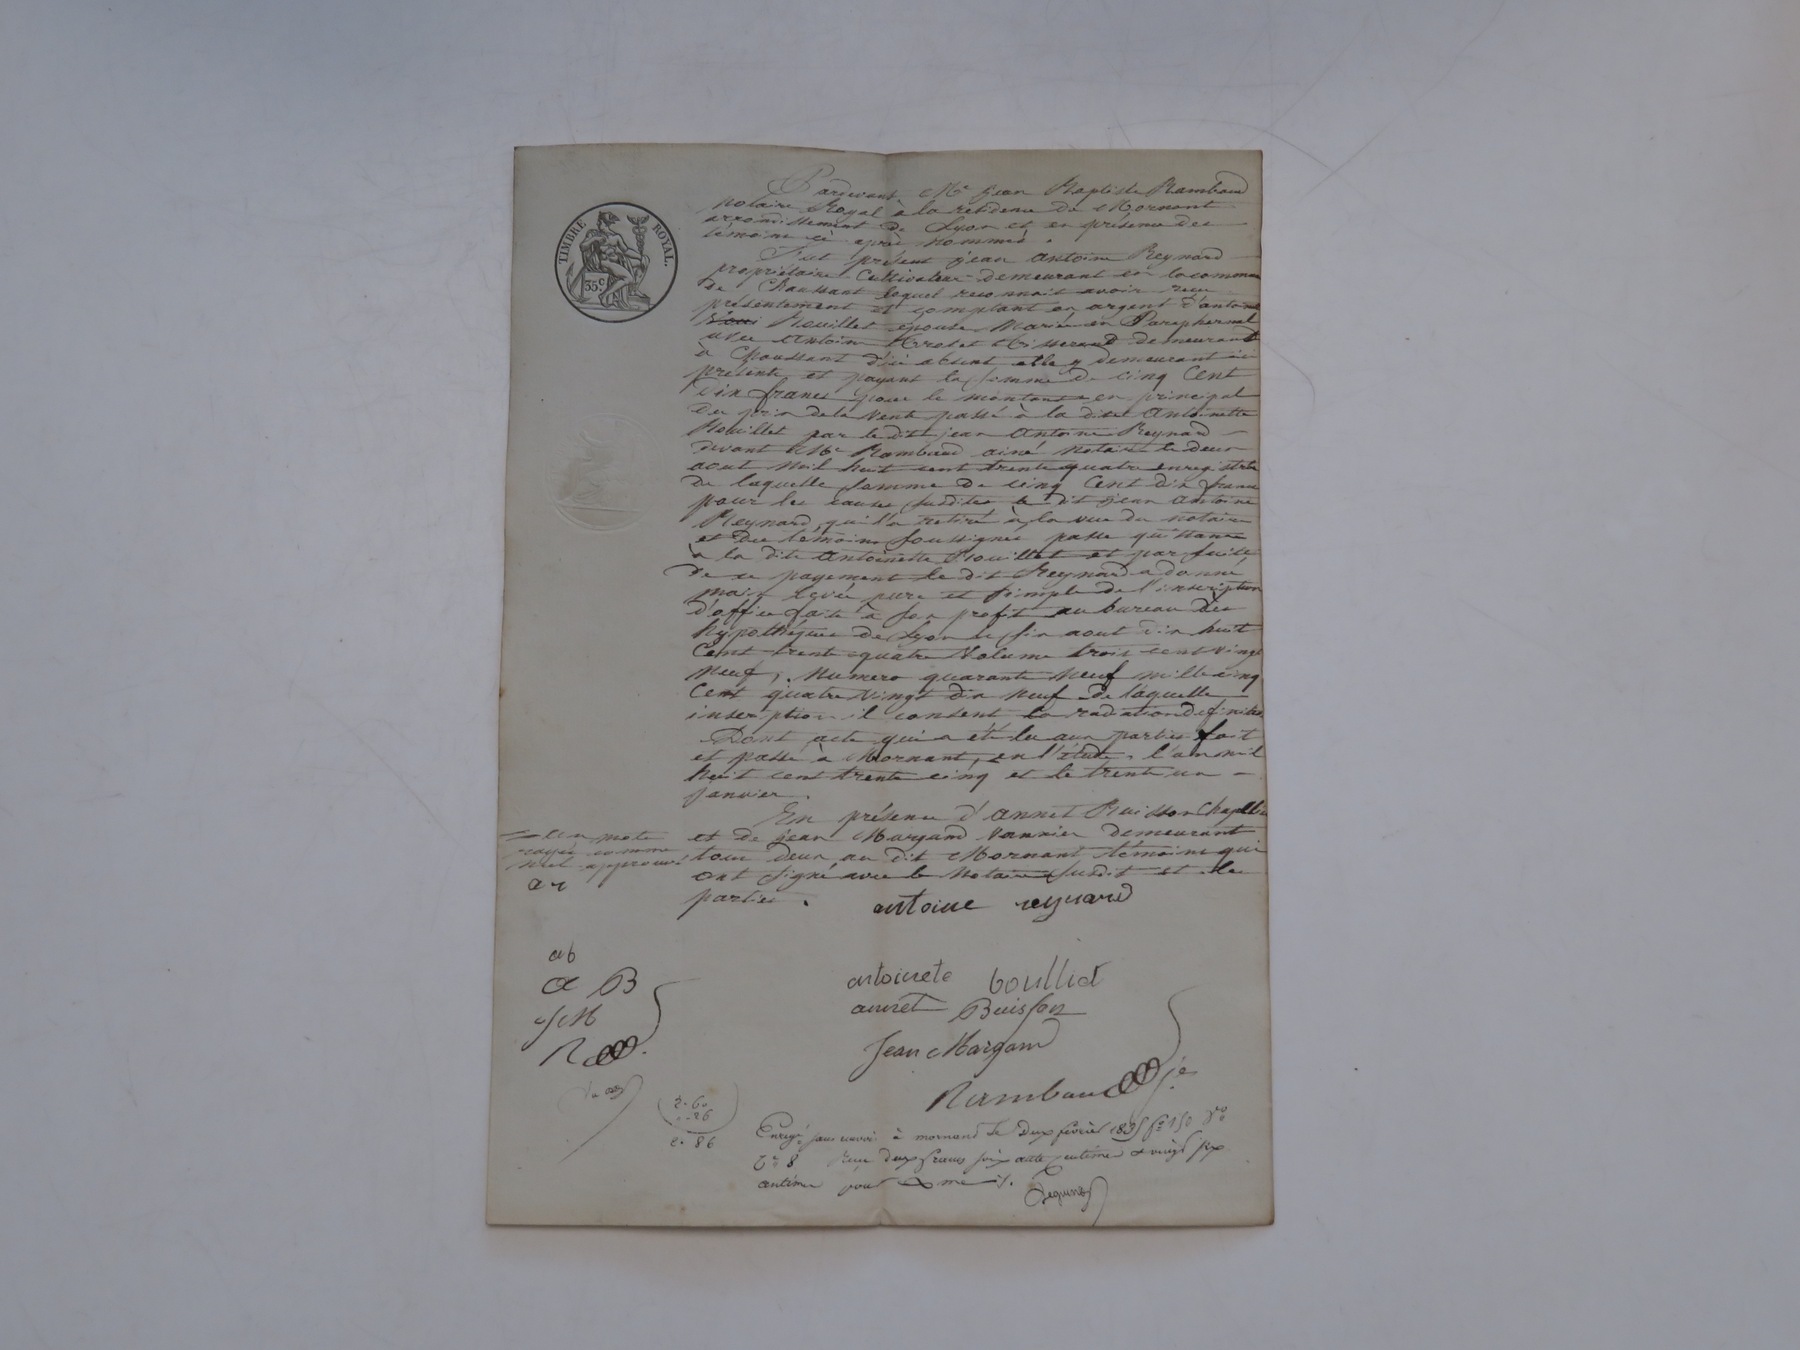 TIMBRE ROYAL.
35 c
Pardevant Me Jean Baptiste Rambaud
notaire Royal à la résidence de Mornant
arrondissement de Lyon et en présence des
témoins ci après nommés.
Fut présent Jean Antoine Reynard
propriétaire Cultivateur demeurant en la commune
de Chaussant lequel reconnait avoir reçu
présentement et comptant en argent d'antoinette
Bouillet épouse Mariée en Paraphernal
avec Antoine demeurant
à Chaussant d'ici absent elle y demeurant ici
présente et payant la somme de cinq Cent
dix francs pour le montant en principal
du prix de la Vente passé à la dite Antoinette
Bouillet par le dit jean Antoine Reynard
devant Me Rambaud ainé Notaire le deux
aout Mil huit cent trente quatre enregistré
de laquelle somme de cinq Cent dix francs
pour les causes susdites le dit jean antoine
Reynard, qui l'a retiré à la vue du notaire
et des témoins soussignés passe quittance
à la dite Antoinette Bouillet et par suite
de ce payement le dit Reynard a donné
main levée pure et simple de l'inscription
d'office faite à son profit au bureau des
hypothéques de Lyon le six aout dix huit
Cent trente quatre Volume trois cent vingt
neuf, Numero quarante neuf mille cinq
Cent quatre vingt dix neuf de laquelle
inscription il consent la radiation definitive
Dont acte qui a été lu aux parties fait
et passé à Mornant, en l'étude, l'an mil
huit cent trente cinq et le trente un
janvier.
En présence d'annet Buisson Chapellier
et de jean Margand Vannier demeurant
tous deux au dit Mornant témoins qui
ont signé avec le Notaire susdit et les
parties.
un mot
rayé comme
nul approuvé
a r
antoine reynard
a b
a B
J M
R
antoinete boulliet
annet Buisson
Jean Margand
Rambaud je
2. 60
. 26
2. 86
Enregé sans renvoi à mornant le deux fevrier 1835 fo 150 Vo
Ce 8 reçu deux francs soixante centimes & vingt six
centimes pour